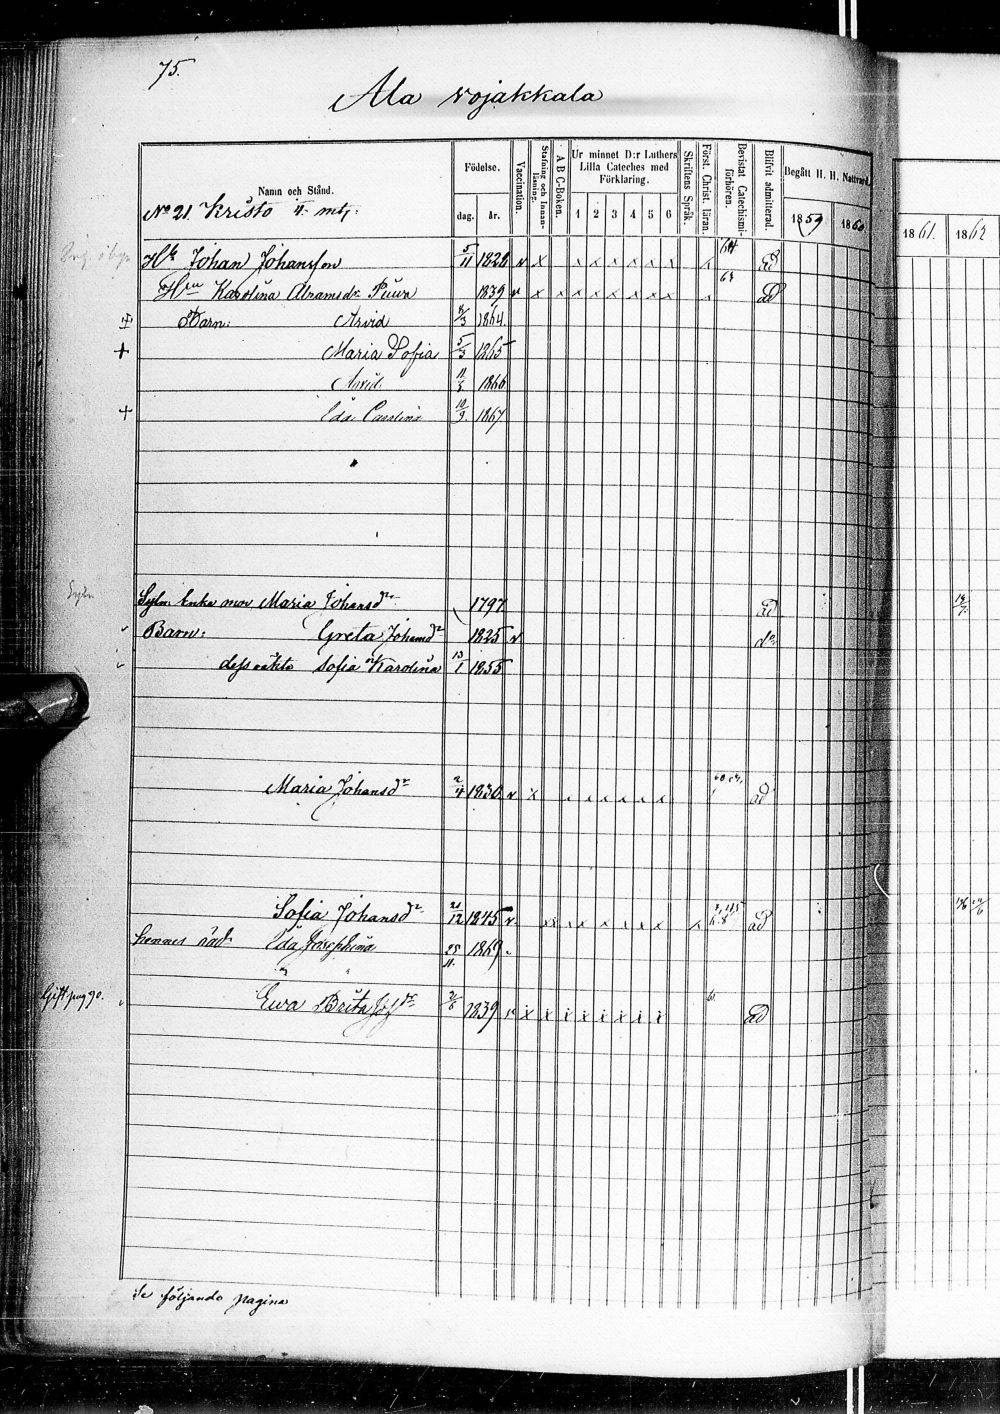 75.
Ala vojakkala
Namn och Stånd.
Födelse.
dag. år.
Vaccination.
Stafning och Innanläsning.
A B C-Boken.
Ur minnet D:r Luthers Lilla Cateches med Förklaring.
1 2 3 4 5 6
Skriftens Språk.
Först. Christ. läran.
Bevistat Catechismiförhören.
Blifvit admitterad.
Begått H. H. Nattvard.
1859 1860 1861. 1862
No 21. Kristo
Johan Johansson 5/11 1828 v x 64 ad
Karolina Abramsdr Puura 1839 v x 63 ad
Barn: Arvid 1864.
+ Maria Sofia 5/3 1865
Arvid 1866
+ Ida Carolina 10/9 1867
Enka mor Maria Johansdr 1797 ad
Barn: Greta Johansdr 1825 v do
dess oäkta Sofia Karolina 13/1 1855
Maria Johansdr 2/4 1830 v x ad
Sofia Johansdr 21/12 1845 v ad
hennes oäd Ida Josephina 25/11. 1869
Gift pag 90. Ewa Brita 2/6 1839 ad
Se följande pagina